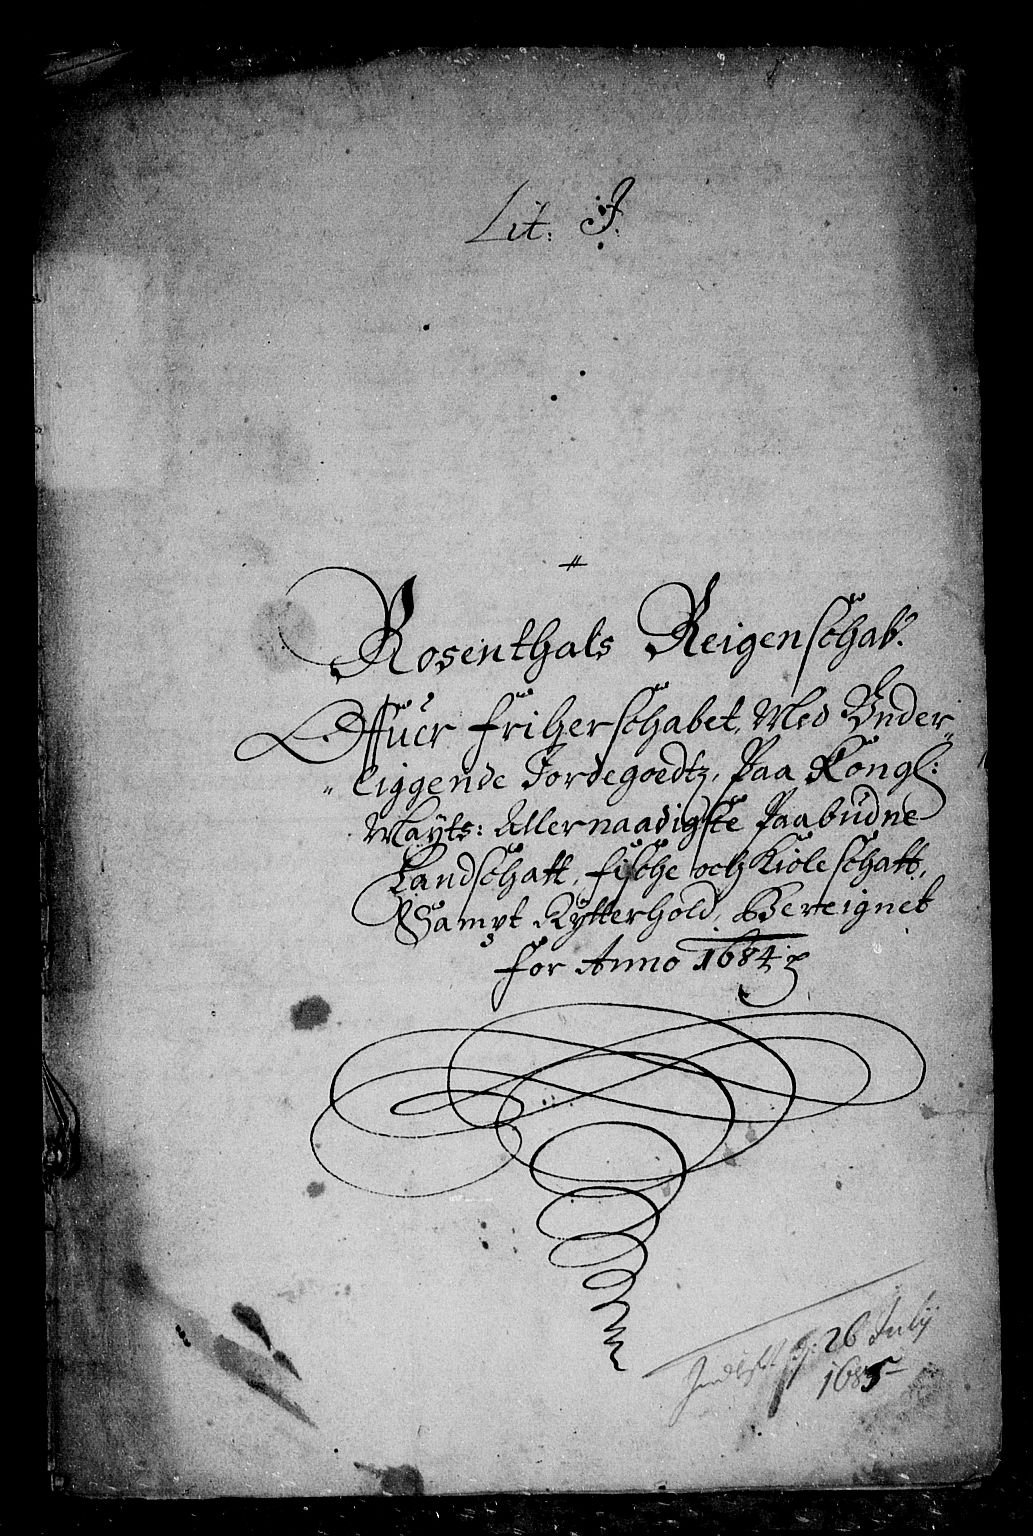 Lit: J.
Rosenthals Reigenschab.
Offuer friherschabet, Med Under„
„liggende Jordegoedtz, Paa Kongl:
Mayts: Allernaadigste Paabudne
Landschatt, fische och Kiöleschatt,
Sampt Rytterhold, Bereignet
for Anno 1684
d: 26 Julij
1685